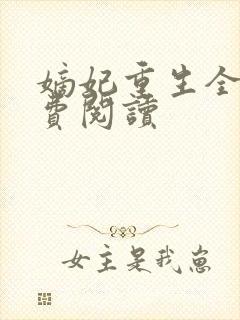 嫡妃重生全
費閱讀
女主是我崽